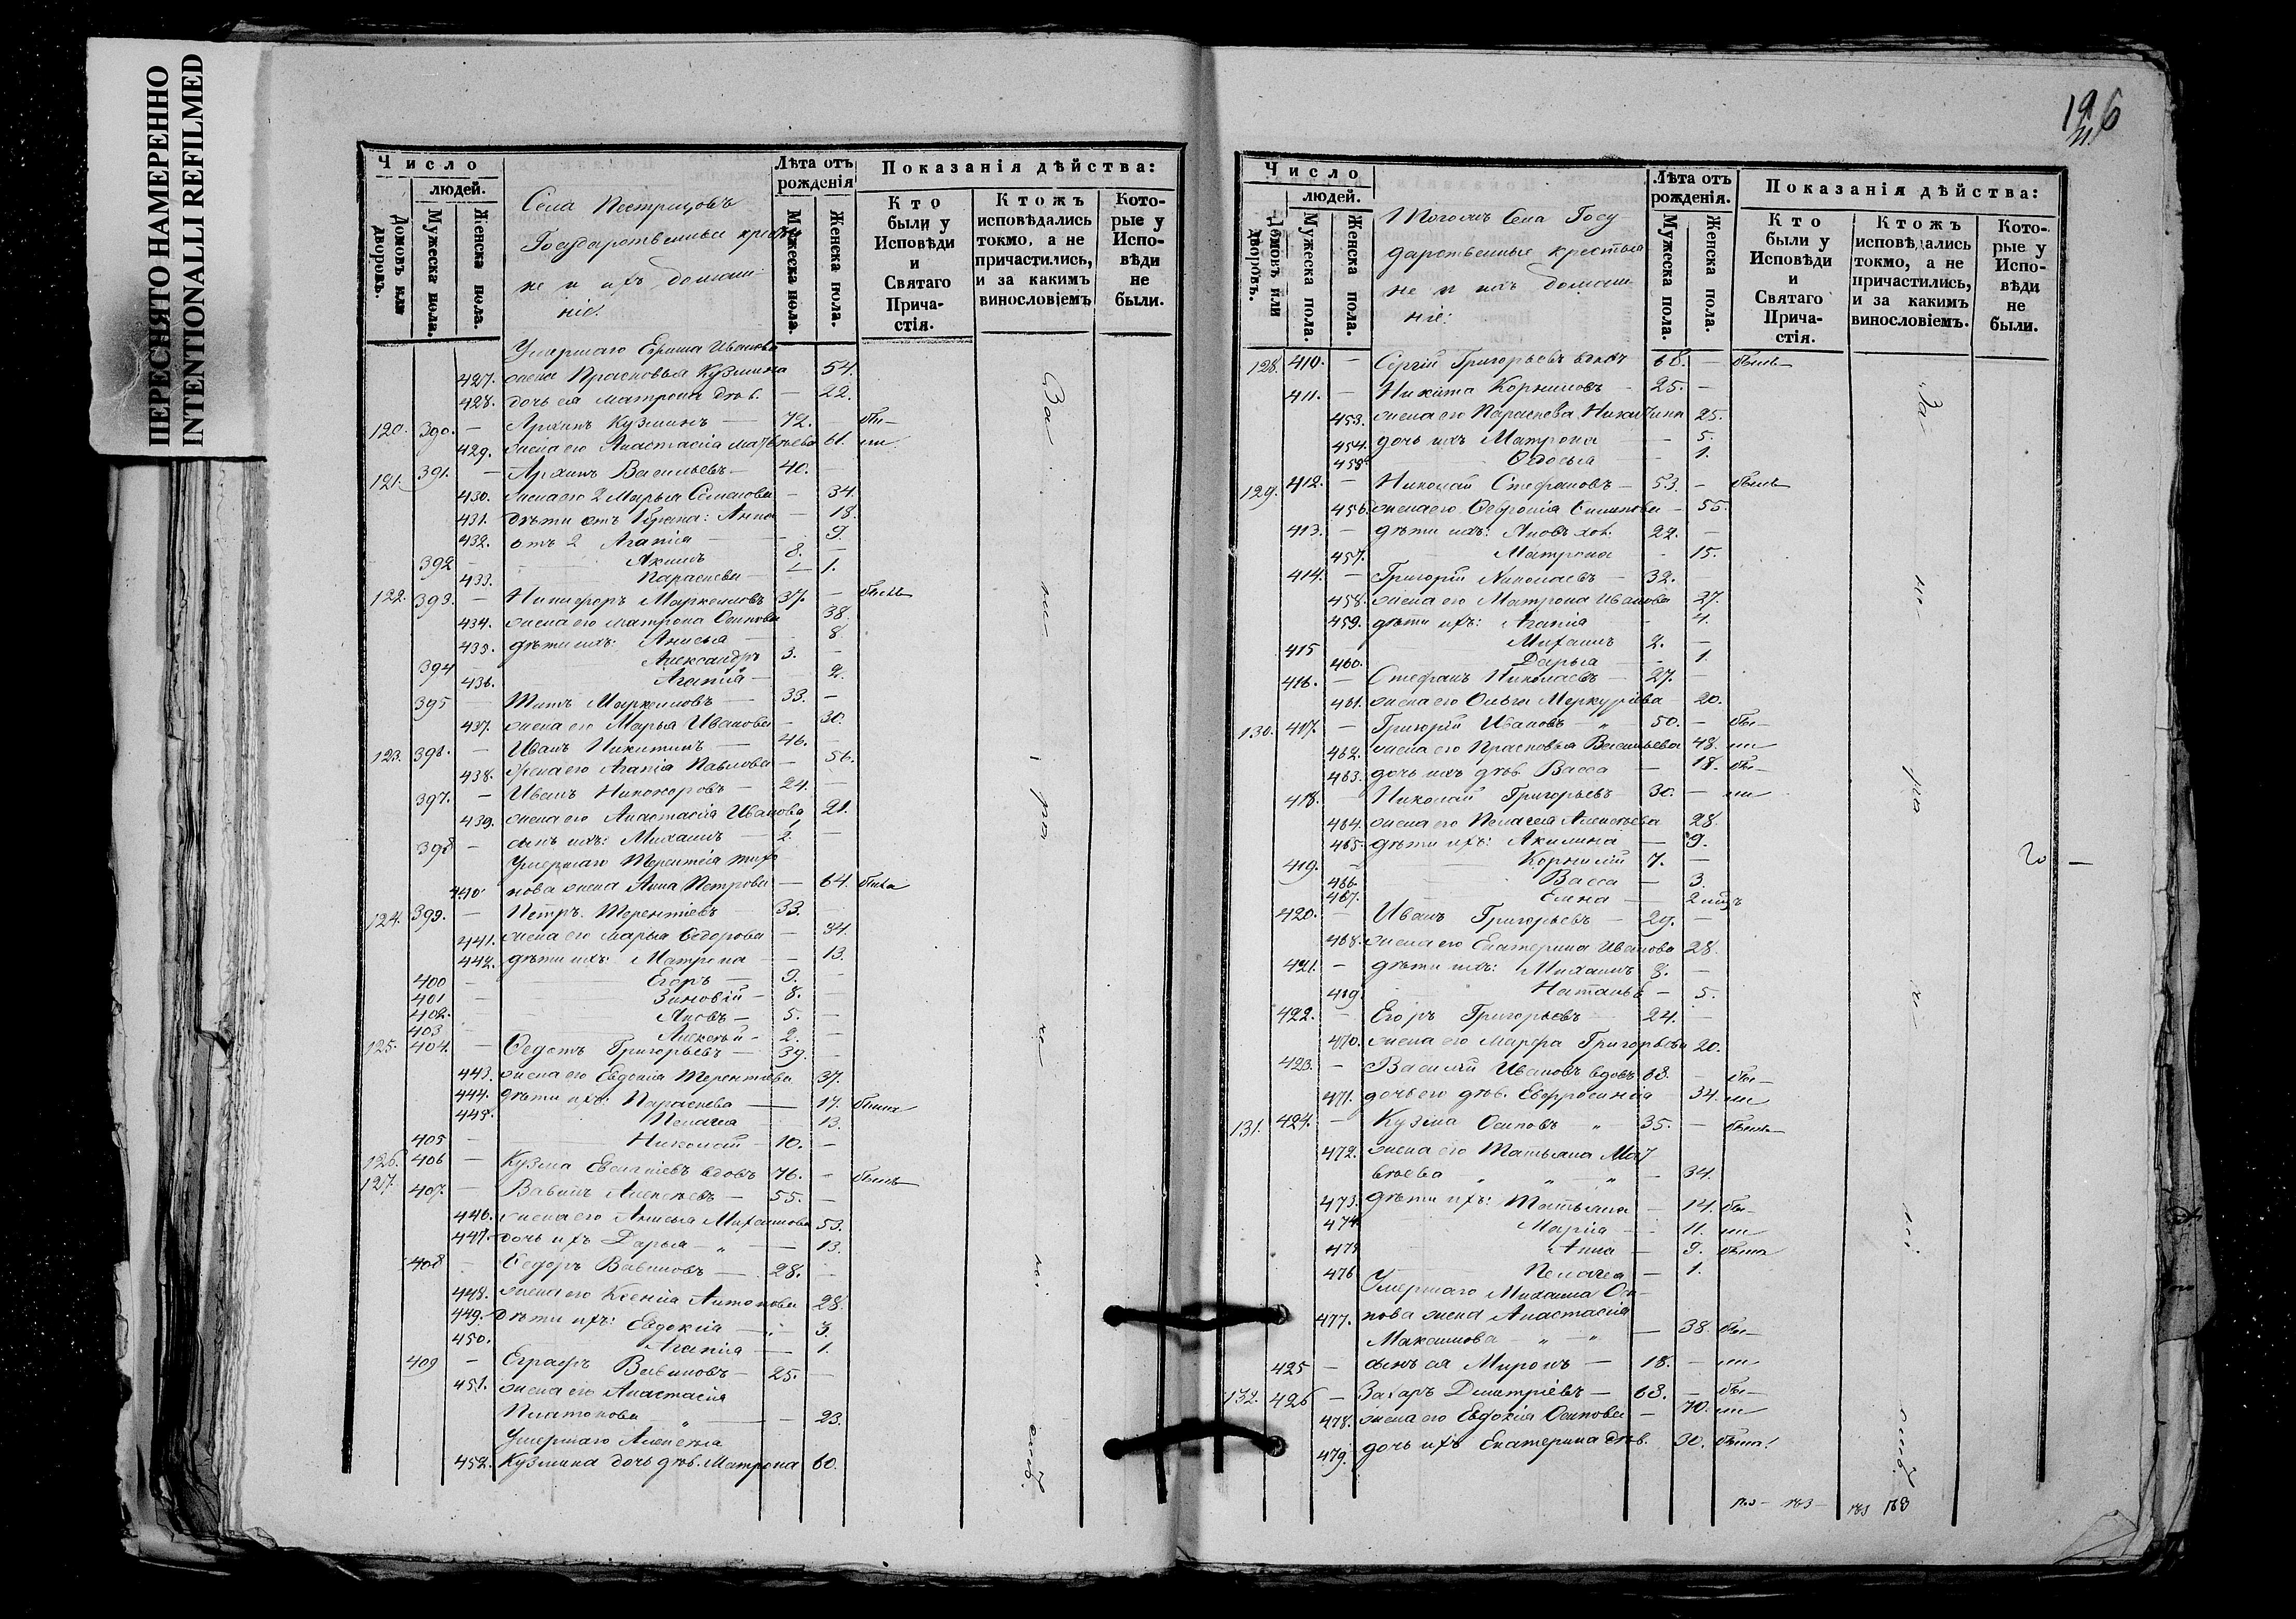 ПЕРЕСНЯТО НАМЕРЕННО
INTENTIONALLI REFILMED
Число
Домовъ или дворовъ.
людей.
Мужеска пола.
Женска пола.
Села Пестрицовъ
Государственные
не и ихъ домаш-
ніе.
Лѣта отъ рожденія
Мужеска пола.
Женска пола.
Показанія дѣйства:
Кто были у Исповѣди и Святаго Прича-стія.
Ктожъ исповѣдались токмо, а не причастились, и за какимъ винословіемъ
Кото-рые у Испо-вѣди не были.
Умершаго Ивановa
427. жена Прасковья Кузмина 54.
428. дочь ея Матрона дѣв. — 22.
120. 390. — Архипъ Кузминъ — 72. бы-
429. жена его Анастасія Матвѣева 61. ли
121. 391. — Архипъ Васильевъ — 40. —
430. жена его 2 Марья Семенова — 34.
431. дѣти отъ 1 брака: Анна — 18.
432. отъ 2 Агапія — 9.
392 — Акимъ 8. —
433. Параскева — 1.
122. 393. — Никифоръ Маркеловъ 37. — былъ
434. жена его Матрона Осипова 38.
435. дѣти ихъ: Анисья — 8.
394 — Александръ 3. —
436. Агапія — 2.
395 — Титъ Маркеловъ — 33. —
437. жена его Марья Иванова — 30.
123. 396. — Иванъ Никитинъ — 46. —
438. жена его Агапія Павлова — 56.
397. — Иванъ Никоноровъ — 24. —
439. жена его Анастасія Иванова 21.
398 — сынъ ихъ: Михаилъ — 2 —
Умершаго Терентія
440. нова жена Анна Петрова — 64. была
124. 399. — Петръ Терентіевъ — 33. —
441. жена его Марья Ѳедорова — 34.
442. дѣти ихъ: Матрена — 13.
400 — Егоръ — 9. —
401 — Зиновій — 8. —
402. — Яковъ — 5. —
403 — Алексѣй — 2. —
125. 404. — Ѳедотъ Григорьевъ — 39. —
443. жена его Евдокія Терентіева 37.
444. дѣти ихъ: Параскева — 17. была
445. Пелагея — 13.
405 — Николай — 10. —
126. 406 — Кузма вдовъ 76. — былъ
127. 407. — Вавилъ Алексѣевъ — 55. —
446. жена его Анисья Михаилова 53.
447. дочь ихъ Дарья — „ — 13.
408 — Ѳедоръ Вавиловъ — 28. —
448. жена его Ксенія Антонова 28.
449. дѣти ихъ: Евдокія — 3.
450. Агапія — 1.
409 — Евграфъ Вавиловъ — 25. —
451. жена его Анастасія
Платонова „ — 23.
Умершаго Алексѣя
452. Кузмина дочь дѣв. Матрона 60.
За
не
ра
ніемъ
196
Число
Домовъ или дворовъ.
людей.
Мужеска пола.
Женска пола.
Тогожъ Села Госу-
дарственные крестья
не и ихъ домаш-
ніе:
Лѣта отъ рожденія.
Мужеска пола.
Женска пола.
Показанія дѣйства:
Кто были у Исповѣди и Святаго Прича-стія.
Ктожъ исповѣдались токмо, а не причастились, и за какимъ винословіемъ.
Кото-рые у Испо-вѣди не были.
128. 410. — Сергій Григорьевъ вдовъ 68. — былъ
411. — Никита Корниловъ — 25. —
453. жена его Параскева Никитина 25.
454. дочь ихъ Матрона — 5.
455. Ѳедосья — 1.
129. 412. — Николай Стефановъ — 53. — былъ
456. жена его Ѳевронія — 55.
413. — дѣти ихъ: Яковъ хол. 22. —
457. Матрона — 15.
414. — Григорій Николаевъ — 32. —
458. жена его Матрона Иванова 27.
459. дѣти ихъ: Агапія — 4.
415 Михаилъ 2. —
460. Дарья — 1.
416. — Стефанъ Николаевъ — 27. —
461. жена его Ольга Меркуріева 20.
130. 417. — Григорій Ивановъ — „ 50. — бы-
462. жена его Прасковья Васильева 48. ли
463. дочь ихъ дѣв. Васса — 18. бы-
418. — Николай Григорьевъ 30. — ли
464. жена его Пелагея Алексѣева 28.
465. дѣти ихъ: Акилина — 9.
419. — Корнилій 7. —
466. Васса — 3.
467. Елена — 2
420. — Иванъ Григорьевъ — 29. —
468. жена его Екатерина Иванова 28.
421. — дѣти ихъ: Михаилъ 8. —
469. Наталья — 5.
422. — Егоръ Григорьевъ — 24. —
470. жена его Марфа Григорьева 20.
423. — Василій Ивановъ вдовъ 63. — бы-
471. дочь его дѣв. Евфросинія — 34. ли
131. 424. — Кузма Осиповъ „ — 35. — былъ
472. жена его Татьяна Мат
вѣева „ „ „ — 34.
473. дѣти ихъ: Татьяна — 14. бы-
474 Марія — 11. ли
475 Анна — 9. была
476 Пелагея — 1.
Умершаго Михаила Оси-
477. пова жена Анастасія
Максимова „ „ — 38. бы-
425 — сынъ ея Миронъ — 18. — ли
132. 426 — Захаръ Дмитріевъ — 63. — бы-
478. жена его Евдокія Осипова — 70. ли
479. дочь ихъ Екатерина дѣв. 30. была
За
не
ра